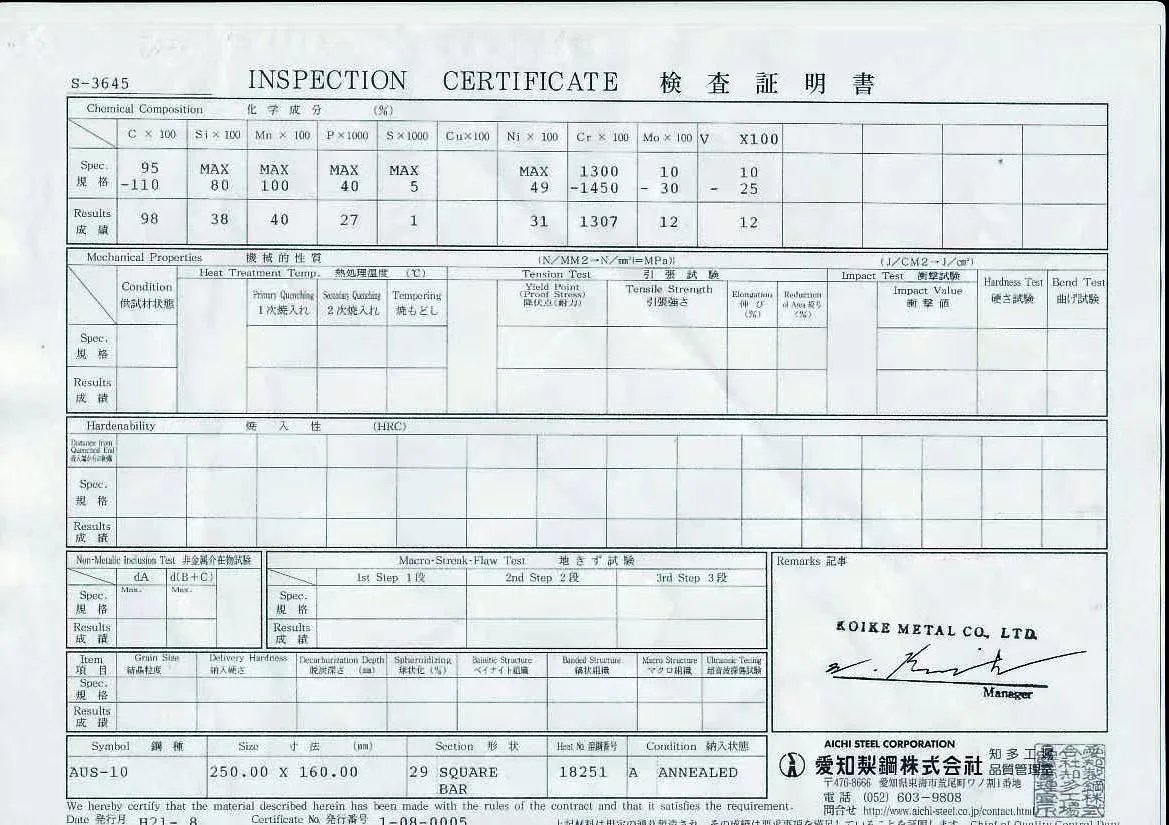 S-3645
INSPECTION CERTIFICATE 検査証明書
Chemical Composition 化学成分 (%)
C × 100 Si × 100 Mn × 100 P×1000 S×1000 Cu×100 Ni × 100 Cr × 100 Mo × 100 V X100
Spec. 95 MAX MAX MAX MAX MAX 1300 10 10
規格 -110 80 100 40 5 49 -1450 - 30 - 25
Results 98 38 40 27 1 31 1307 12 12
成績
Mechanical Properties 機械的性質 (N/MM2→N/mm²(=MPa)) (J/CM2→J/cm²)
Heat Treatment Temp. 熱処理温度 (℃) Tension Test 引張試験 Impact Test 衝撃試験
Condition
供試材状態
Primary Quenching
1次焼入れ
Secondary Quenching
2次焼入れ
Tempering
焼もどし
Yield Point
(Proof Stress)
降伏点(耐力)
Tensile Strength
引張強さ
Elongation
伸び
(%)
Reduction
of Area 絞り
(%)
Impact Value
衝撃値
Hardness Test
硬さ試験
Bend Test
曲げ試験
Spec.
規格
Results
成績
Hardenability 焼入性 (HRC)
Distance from
Quenched End
Spec.
規格
Results
成績
Non-Metalic Inclusion Test 非金属介在物試験
dA d(B+C)
Max. Max.
Spec.
規格
Results
成績
Macro-Streak-Flaw Test 地きず試験
1st Step 1段 2nd Step 2段 3rd Step 3段
Spec.
規格
Results
成績
Remarks 記事
KOIKE METAL CO., LTD.
Manager
Item
項目
Grain Size
結晶粒度
Delivery Hardness
納入硬さ
Decarburization Depth
脱炭深さ (mm)
Spheroidizing
球状化 (%)
Bainitic Structure
ベイナイト組織
Banded Structure
縞状組織
Macro Structure
マクロ組織
Ultrasonic Testing
超音波探傷試験
Spec.
規格
Results
成績
Symbol 鋼種 Size 寸法 (mm) Section 形状 Heat No. 溶鋼番号 Condition 納入状態
AUS-10 250.00 X 160.00 29 SQUARE 18251 A ANNEALED
BAR
AICHI STEEL CORPORATION
愛知製鋼株式会社
知多工場
品質管理室
〒476-8666 愛知県東海市荒尾町ワノ割1番地
電話 (052) 603-9808
問合せ http://www.aichi-steel.co.jp/contact.html
We hereby certify that the material described herein has been made with the rules of the contract and that it satisfies the requirement.
Date 発行月 H21- 8 Certificate No. 発行番号 1-08-0005